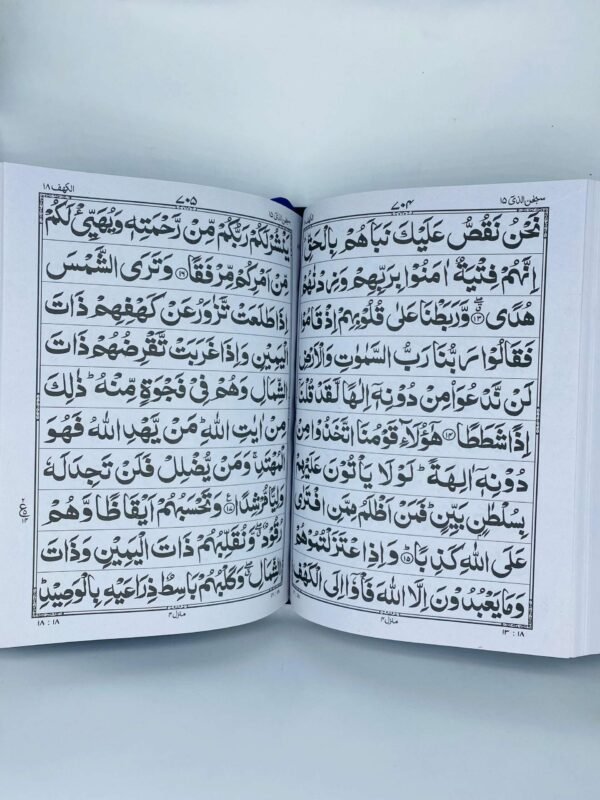 سبحٰن الذی ۱۵
۷۰۴
نَحْنُ نَقُصُّ عَلَيْكَ نَبَاَهُمْ بِالْحَقِّ ؕ
اِنَّهُمْ فِتْيَةٌ اٰمَنُوْا بِرَبِّهِمْ وَزِدْنٰهُمْ
هُدًى ۖۗ ﴿۱۳﴾ وَّرَبَطْنَا عَلٰى قُلُوْبِهِمْ اِذْ قَامُوْا
فَقَالُوْا رَبُّنَا رَبُّ السَّمٰوٰتِ وَالْاَرْضِ
لَنْ نَّدْعُوَا۟ مِنْ دُوْنِهٖۤ اِلٰهًا لَّقَدْ قُلْنَاۤ
اِذًا شَطَطًا ﴿۱۴﴾ هٰۤؤُلَآءِ قَوْمُنَا اتَّخَذُوْا مِنْ
دُوْنِهٖۤ اٰلِهَةً ؕ لَوْلَا يَاْتُوْنَ عَلَيْهِمْ
بِسُلْطٰنٍۭ بَيِّنٍ ؕ فَمَنْ اَظْلَمُ مِمَّنِ افْتَرٰى
عَلَى اللّٰهِ كَذِبًا ؕ ﴿۱۵﴾ وَاِذِ اعْتَزَلْتُمُوْهُمْ
وَمَا يَعْبُدُوْنَ اِلَّا اللّٰهَ فَاْوٗۤا اِلَى الْكَهْفِ
منزل ۴
۱۳ : ۱۸
سبحٰن الذی ۱۵
۷۰۵
الکھف ۱۸
يَنْشُرْ لَكُمْ رَبُّكُمْ مِّنْ رَّحْمَتِهٖ وَيُهَيِّئْ لَكُمْ
مِّنْ اَمْرِكُمْ مِّرْفَقًا ﴿۱۶﴾ وَتَرَى الشَّمْسَ
اِذَا طَلَعَتْ تَّزٰوَرُ عَنْ كَهْفِهِمْ ذَاتَ
الْيَمِيْنِ وَاِذَا غَرَبَتْ تَّقْرِضُهُمْ ذَاتَ
الشِّمَالِ وَهُمْ فِيْ فَجْوَةٍ مِّنْهُ ؕ ذٰلِكَ
مِنْ اٰيٰتِ اللّٰهِ ؕ مَنْ يَّهْدِ اللّٰهُ فَهُوَ
الْمُهْتَدِ ۚ وَمَنْ يُّضْلِلْ فَلَنْ تَجِدَ لَهٗ
وَلِيًّا مُّرْشِدًا ﴿۱۷﴾ وَتَحْسَبُهُمْ اَيْقَاظًا وَّهُمْ
رُقُوْدٌ ۖۗ وَّنُقَلِّبُهُمْ ذَاتَ الْيَمِيْنِ وَذَاتَ
الشِّمَالِ ۖۗ وَكَلْبُهُمْ بَاسِطٌ ذِرَاعَيْهِ بِالْوَصِيْدِ ؕ
منزل ۴
۱۸ : ۱۸